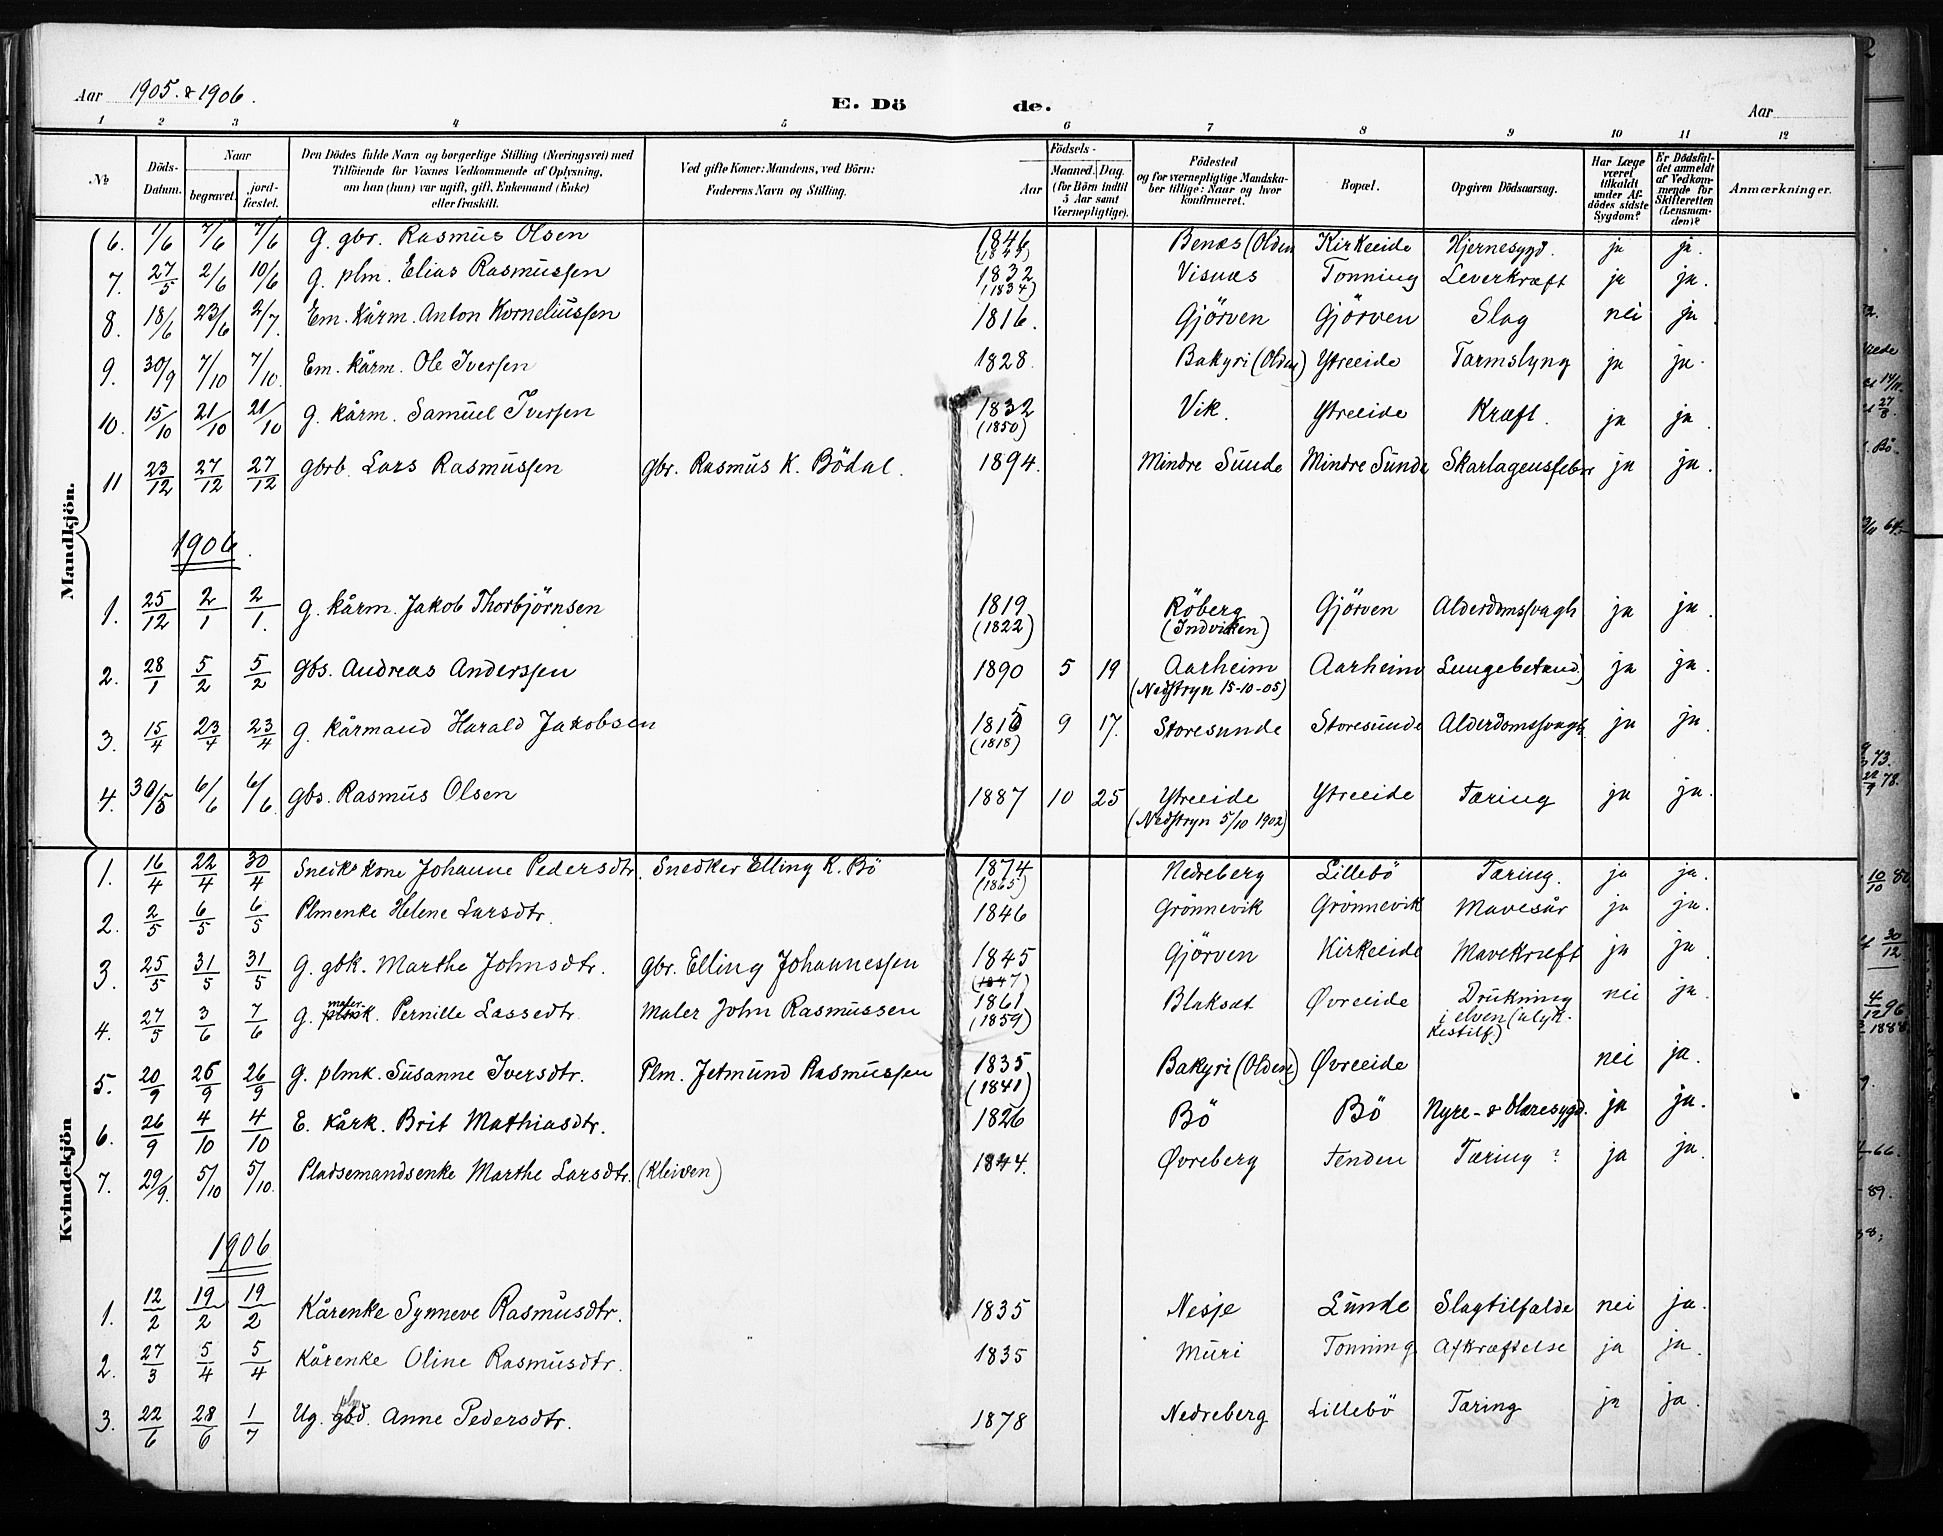 Aar 1905. & 1906. E. Dö de. Aar
1 2 3 4 5 6 7 8 9 10 11 12
№ Döds-Datum. Naar begravet. jordfæstet. Den Dödes fulde Navn og borgerlige Stilling (Næringsvei) med Tilföiende for Voxnes Vedkommende af Oplysning, om han (hun) var ugift, gift, Enkemand (Enke) eller fraskilt. Ved gifte Koner: Mandens, ved Börn: Faderens Navn og Stilling. Födsels- Aar Maaned. Dag. (for Börn indtil 5 Aar samt Værnepligtige). Födested og for værnepligtige Mandskaber tillige: Naar og hvor konfirmeret. Bopæl. Opgiven Dödsaarsag. Har Læge været tilkaldt under Afdödes sidste Sygdom? Er Dödsfaldet anmeldt af Vedkommende for Skifteretten (Lensmanden)? Anmærkninger.
Mandkjön.
6. 1/6 7/6 7/6 G. gbr. Rasmus Olsen 1846 Benæs (Olden Kirkeeide Hjernesygd. ja ja.
7. 27/5 2/6 10/6 G. plm. Elias Rasmussen 1832 (1834) Visnæs Tonning Leverkræft ja ja.
8. 18/6 23/6 2/7. Em. kårm. Anton Korneliussen 1816. Gjörven Gjörven Slag nei ja.
9. 30/9 7/10 7/10. Em. kårm. Ole Iversen 1828. Bakyri (Olden) Ytreeide Tarmslyng ja ja.
10. 15/10 21/10 21/10 G. kårm. Samuel Iversen 1832 (1850) Vik. Ytreeide Kræft. ja ja.
11 23/12 27/12 27/12 gbrb. Lars Rasmussen gbr. Rasmus K. Bödal. 1894. Mindre Sunde Mindre Sunde Skarlagensfeber ja ja.
1906.
1. 25/12 2/1 2/1. G. kårm. Jakob Thorbjörnsen 1819 (1822) Röberg (Indviken) Gjörven Alderdomssvagh ja ja.
2. 28/1 5/2 5/2 gbs. Andreas Anderssen 1890 5 19 Aarheim (Nedstryn 15-10-05) Aarheim Lungebetænd.) ja ja.
3. 15/4 23/4 23/4 G. kårmand Harald Jakobsen 1815 (1818) 9 17. Storesunde Storesunde Alderdomssvagh. ja ja.
4. 30/5 6/6 6/6. gbs. Rasmus Olsen 1887 10 25 Ytreeide (Nedstryn 5/10 1902) Ytreeide Tæring ja ja.
Kvindekjön
1. 16/4 22/4 30/4 Snedk kone Johanne Pedersdtr. Snedker Elling K. Bö 1874 (1865) Nedreberg Lillebö Tæring. ja ja.
2. 2/5 6/5 6/5 Plmenke Helene Larsdtr. 1846 Grönnevik Grönnevik Mavesår ja ja.
3. 25/5 31/5 31/5 G. gbk. Marthe Johnsdtr. gbr. Elling Johannessen 1845 (1847) Gjörven Kirkeeide Mavekræft ja ja.
4. 27/5 3/6 7/6 G. maler plmk. Pernille Lassedtr. Maler John Rasmussen 1861 (1859) Blaksæt Øvreeide Drukning i elven (ulykkestilf.) nei ja.
5. 20/9 26/9 26/9 G. plmk. Susanne Iversdtr. Plm. Jetmund Rasmussen 1835 (1841) Bakyri (Olden) Øvreeide nei ja.
6. 26/9 4/10 4/10 E. kårk. Brit Mathiasdtr. 1826 Bö Bö Nyre- & blæresygd. ja ja.
7. 29/9. 5/10 5/10. Pladsemandsenke Marthe Larsdtr. (Kleiven) 1844. Øvreberg Fenden Tæring ? ja ja.
1906
1. 12/2 19/2 19/2 Kårenke Synneve Rasmusdtr. 1835 Nesje Sunde Slagtilfælde nei ja.
2. 27/3 5/4 5/4 Kårenke Oline Rasmusdtr. 1835 Muri Tonning Afkræftelse ja ja.
3. 22/6 28/6 1/7 Ug. plm gbd. Anne Pedersdtr. 1878 Nedreberg Lillebö Tæring ja ja.